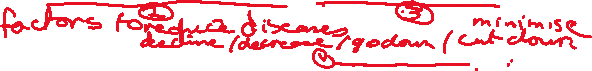 ② ③
factors to reduce diseases minimise
decline/decrease/go down/cut down